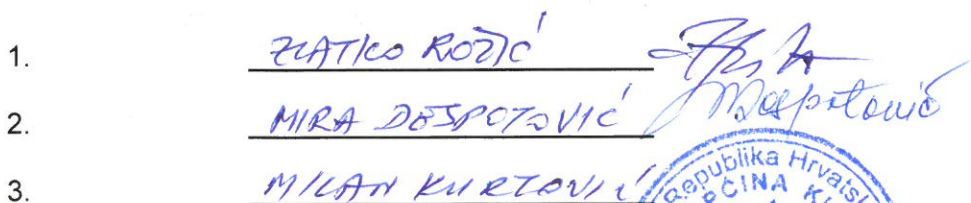 1. ZLATKO ROŽIĆ
2. MIRA DESPOTOVIĆ MDespotović
3. MILAN KURTOVIĆ
Republika Hrvats